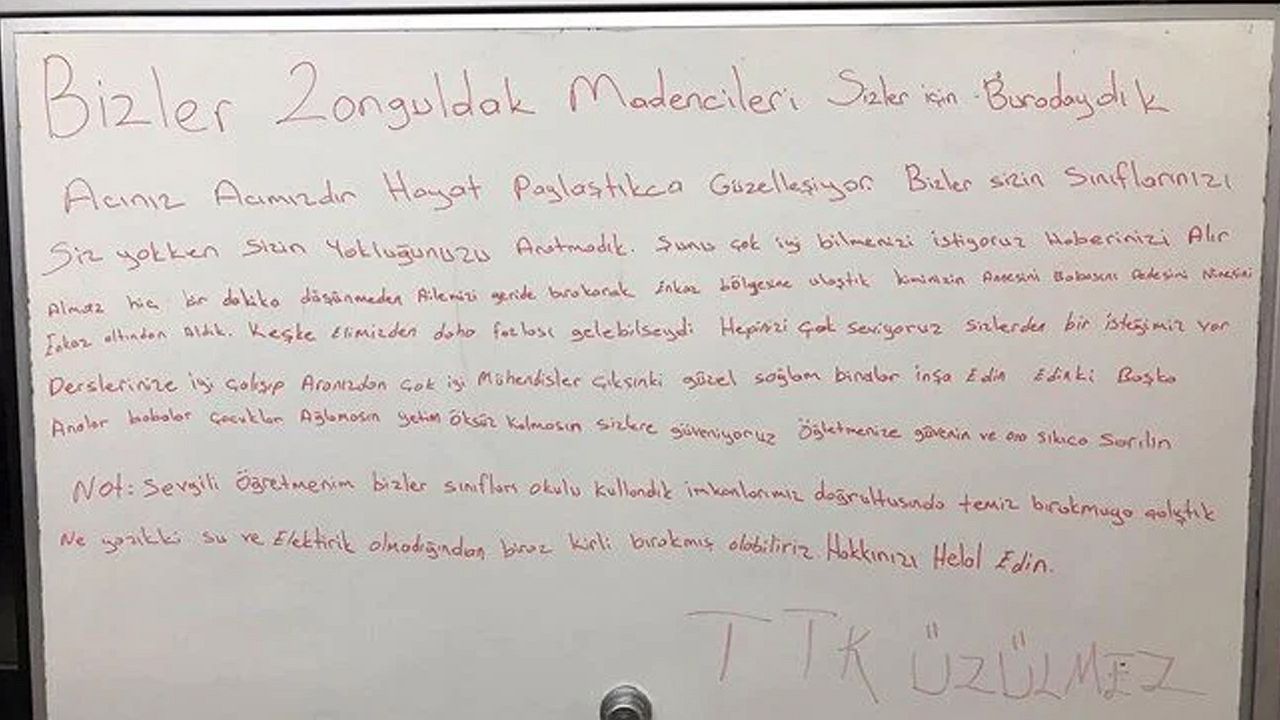 Bizler Zonguldak Madencileri Sizler için Buradaydık
Acınız Acımızdır Hayat Paylaştıkca Güzelleşiyor Bizler sizin Sınıflarınızı
Siz yokken Sizin Yokluğunuzu Aratmadık. Şunu çok iyi bilmenizi istiyoruz Haberinizi Alır
Almaz hic bir dakika düşünmeden Ailemizi geride bırakarak Enkaz bölgesine ulaştık kiminizin Annesini Babasını Dedesini Ninesini
Enkaz altından Aldık. Keşke Elimizden daha fazlası gelebilseydi Hepinizi Çok Seviyoruz sizlerden bir isteğimiz var
Derslerinize iyi çalışıp Aranızdan Çok iyi Mühendisler Çıksınki güzel sağlam binalar inşa Edin Edinki Başka
Analar babalar Çocukları Ağlamasın yetim öksüz kalmasın sizlere güveniyoruz Öğretmenize güvenin ve ona sıkıca Sarılın
Not: Sevgili Öğretmenim bizler sınıfları okulu kullandık imkanlarımız doğrultusunda temiz bırakmaya çalıştık
Ne yazıkki su ve Elektirik olmadığından biraz kirli bırakmış olabiliriz. Hakkınızı Helal Edin.
TTK ÜZÜLMEZ